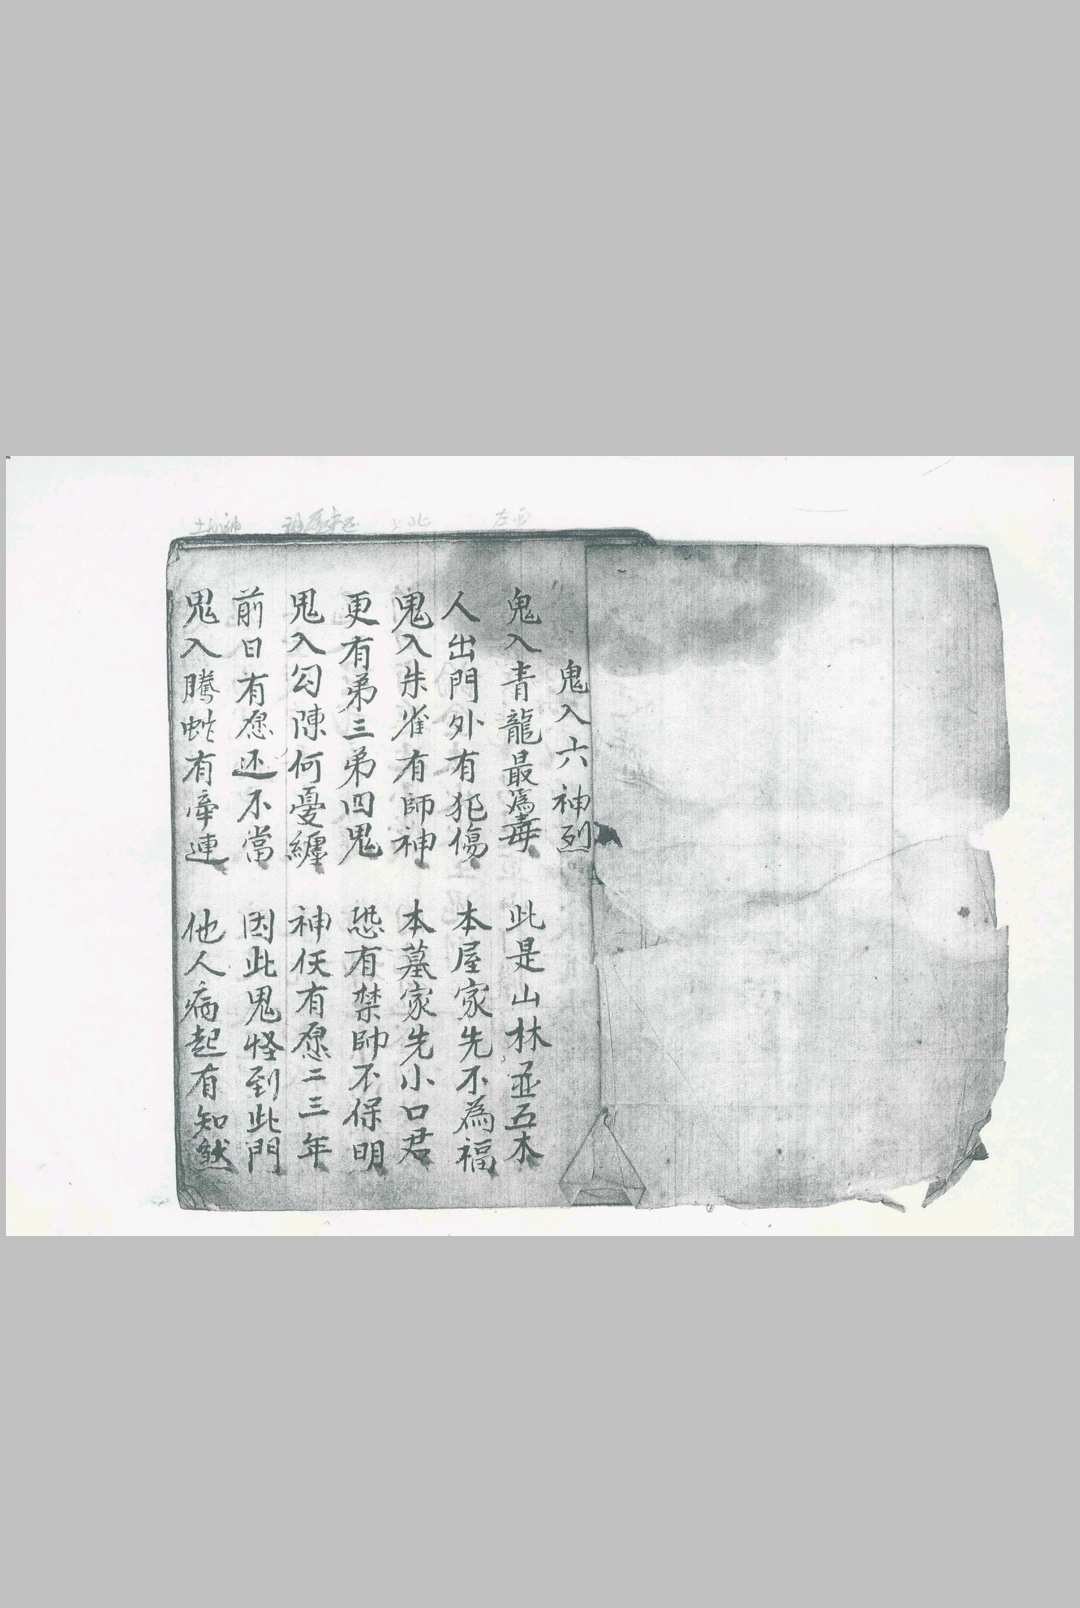 鬼入六神列
鬼入青龍最為毒 此是山林並五木
人出門外有犯傷 本屋家先不為福
鬼入朱雀有師神 本墓家先小口君
更有弟三弟四鬼 恐有禁師不保明
鬼入勾陳何憂纏 神仸有愿二三年
前日有愿还不當 因此鬼怪到此門
鬼入騰蛇有牵連 他人病起有知然